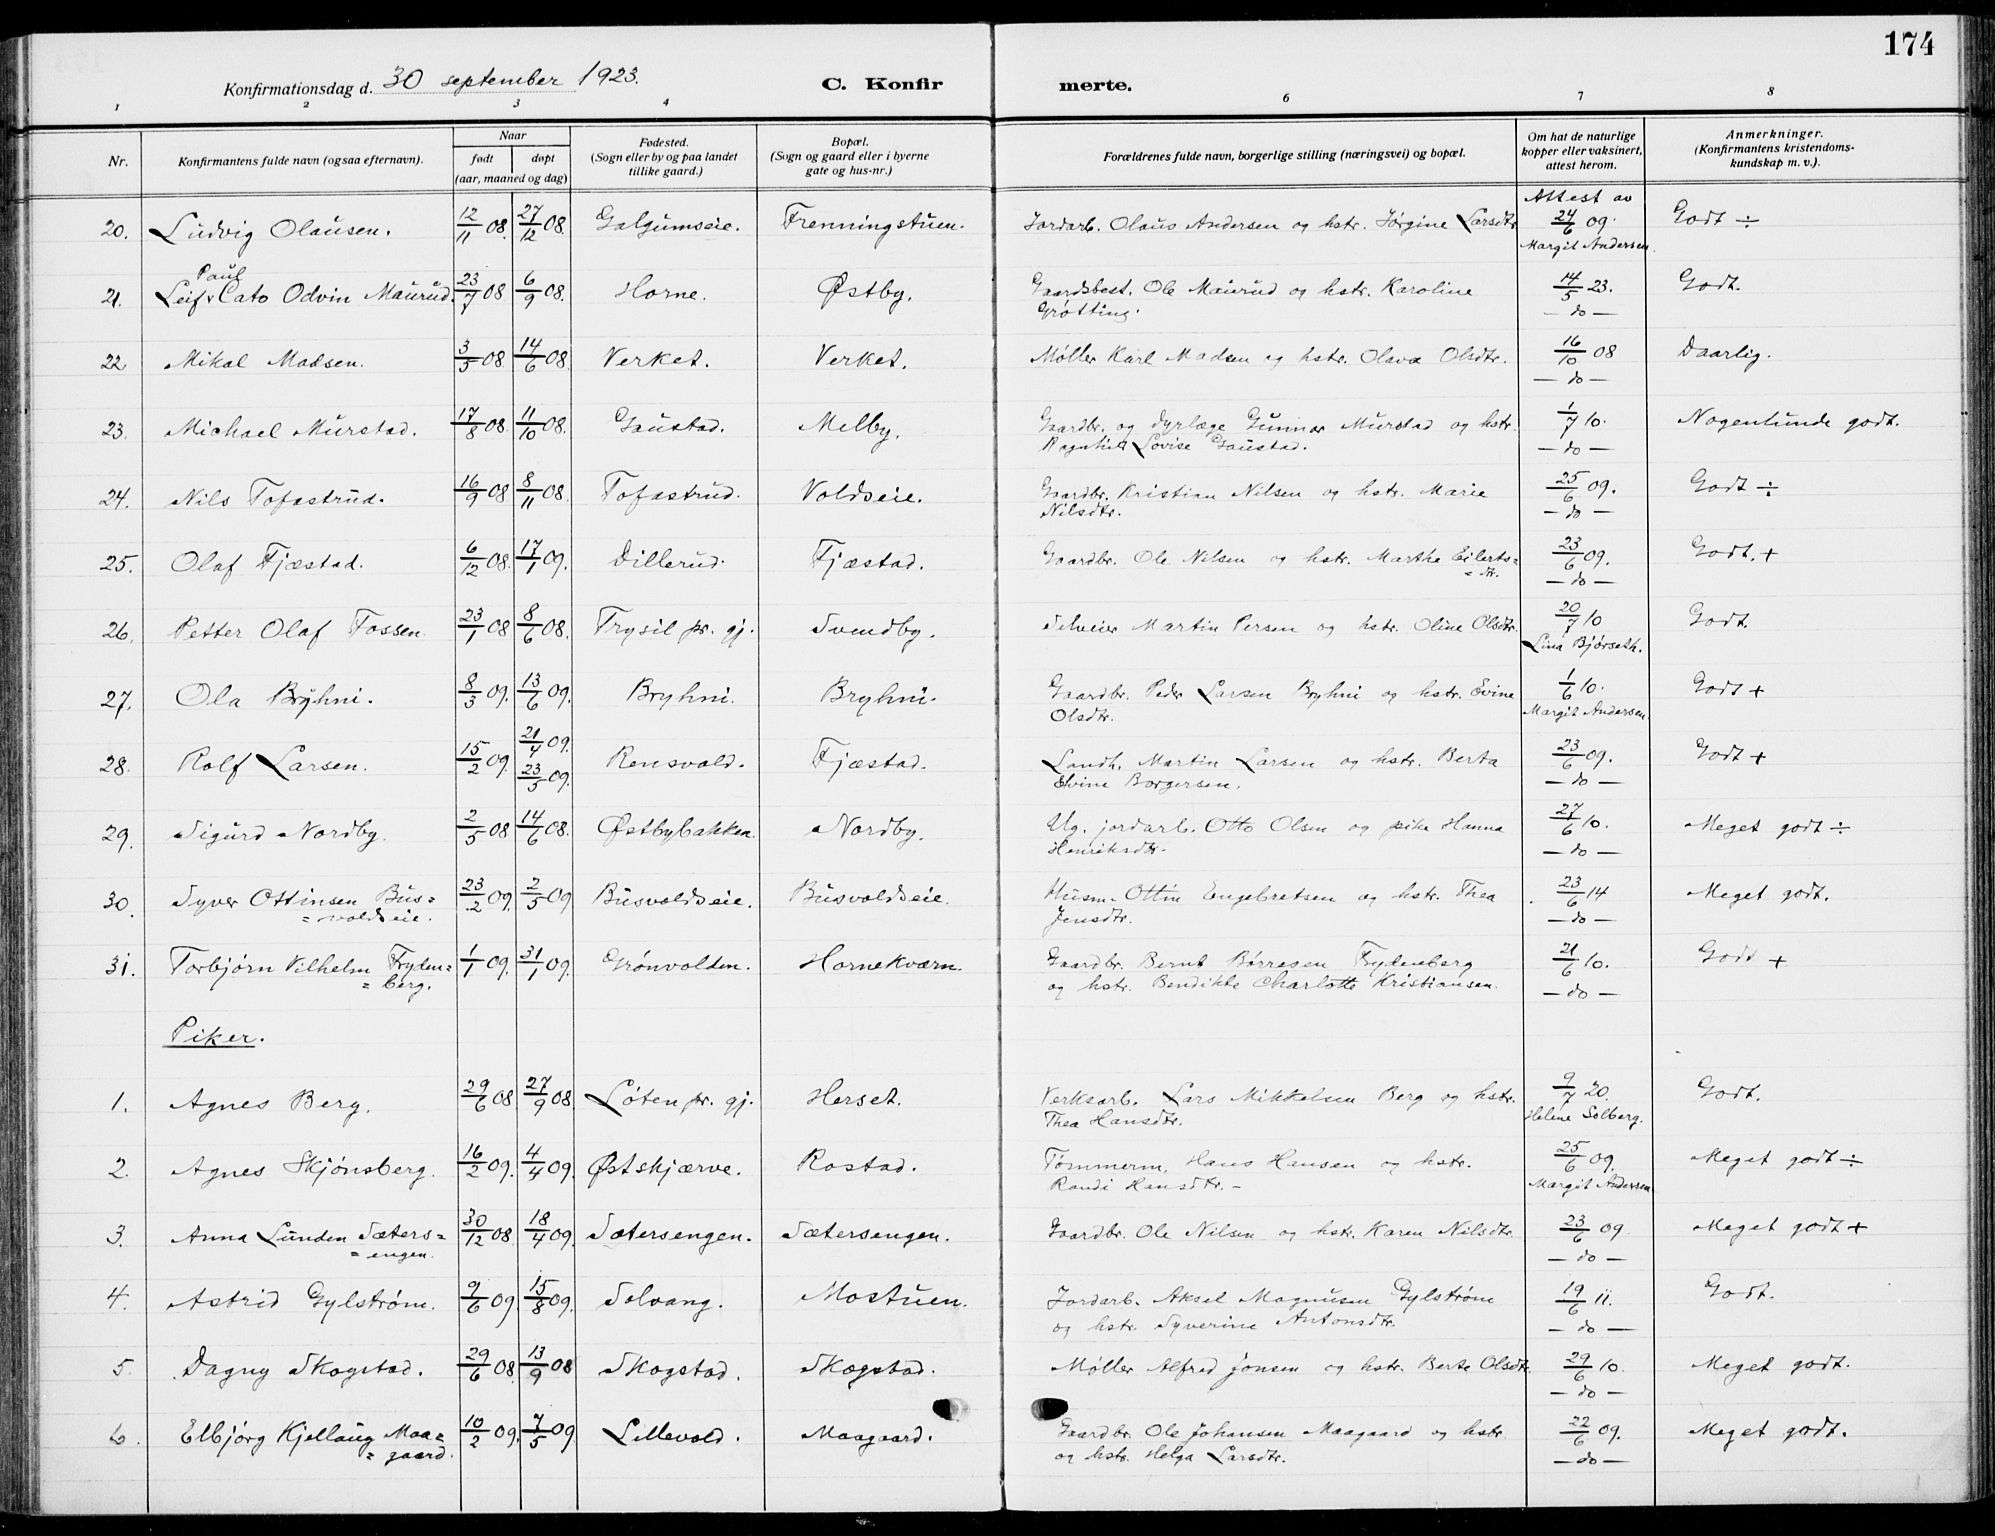 174
Konfirmationsdag d. 30 september 1923.
C. Konfirmerte.
1 2 3 4 6 7 8
Nr.
Konfirmantens fulde navn (ogsaa efternavn).
Naar
født døpt
(aar, maaned og dag)
Fødested.
(Sogn eller by og paa landet
tillike gaard.)
Bopæl.
(Sogn og gaard eller i byerne
gate og hus-nr.)
Forældrenes fulde navn, borgerlige stilling (næringsvei) og bopæl.
Om hat de naturlige
kopper eller vaksinert,
attest herom.
Anmerkninger.
(Konfirmantens kristendoms-
kundskap m. v.).
Attest av
20. Ludvig Olausen. 12/11 08. 27/12 08. Galgumseie. Frenningstuen. Jordarb. Olaus Andersen og hstr. Jørgine Larsdtr. 24/6 09. Godt ÷
Margit Andersen.
Paul
21. Leif v Cato Odvin Maurud. 23/7 08. 6/9 08. Horne. Østby. Gaardsbest. Ole Maurud og hstr. Karoline 14/5 23. Godt.
Grøtting. — do —
22 Mikal Madsen. 3/5 08. 14/6 08. Verket. Verket. Møller Karl Madsen og hstr. Olava Olsdtr. 16/10 08 Daarlig.
— do —
23. Michael Murstad. 17/8 08. 11/10 08. Gaustad. Melby. Gaardbr. og dyrlæge Gunnar Murstad og hstr. 1/7 10. Nogenlunde godt.
Ragnhild Lovise Gaustad. — do —
24. Nils Tofastrud. 16/9 08. 8/11 08. Tofastrud. Voldseie. Gaardbr. Kristian Nilsen og hstr. Marie 25/6 09. Godt ÷
Nilsdtr. — do —
25. Olaf Fjæstad. 6/12 08. 17/1 09. Dillerud. Fjæstad. Gaardbr. Ole Nilsen og hstr. Marthe Eilerts= 23/6 09. Godt. +
= dtr. — do —
26. Petter Olaf Tossen. 23/1 08 8/6 08. Trysil pr. gj. Svendby. Selveier Martin Persen og hstr. Oline Olsdtr. 20/7 10 Godt.
Lina Bjørseth.
27. Ola Bryhni. 8/3 09. 13/6 09. Bryhni. Bryhni. Gaardbr. Peder Larsen Bryhni og hstr. Evine 1/6 10. Godt +
Olsdtr. Margit Andersen.
28. Rolf Larsen. 15/2 09. 21/4 09. 23/5 09. Rensvold. Fjæstad. Landh. Martin Larsen og hstr. Berta 23/6 09. Godt +
Elvine Borgersen. — do —
29. Sigurd Nordby. 2/5 08 14/6 08. Østbybakken. Nordby. Ug. jordarb. Otto Olsen og pike Hanna 27/6 10. Meget godt ÷
Henriksdtr. — do —
30. Syver Ottinsen Bus= 23/2 09. 2/5 09 Busvoldseie. Busvoldseie. Husm. Ottin Engebretsen og hstr. Thea 23/6 14 Meget godt.
= voldseie. Jensdtr. — do —
31. Torbjørn Vilhelm Fryden= 1/1 09. 31/1 09. Grønvolden. Hornekværn. Gaardbr. Bernt Børresen Frydenberg 21/6 10. Godt +
= berg. og hstr. Bendikte Charlotte Kristiansen. — do —
Piker.
1. Agnes Berg. 29/6 08 27/9 08. Løten pr. gj. Herset. Verksarb. Lars Mikkelsen Berg og hstr. 9/7 20. Godt.
Thea Hansdtr. Helene Solberg.
2. Agnes Skjønsberg. 16/2 09. 4/4 09. Østskjærve. Rostad. Tømmerm. Hans Hansen og hstr. 25/6 09. Meget godt ÷
Randi Hansdtr. – Margit Andersen
3. Anna Lunden Sæters= 30/12 08. 18/4 09. Sætersengen. Sætersengen. Gaardbr. Ole Nilsen og hstr. Karen Nilsdtr. 23/6 09 Meget godt +
= engen. — do —
4. Astrid Gylstrøm. 9/6 09. 15/8 09. Solvang. Mostuen. Jordarb. Aksel Magnusen Gylstrøm 19/6 11. Godt.
og hstr. Syverine Antonsdtr. — do —
5. Dagny Skogstad. 29/6 08. 13/9 08 Skogstad. Skogstad. Møller Alfred Jonsen og hstr. Berte Olsdtr. 29/6 10. Meget godt.
— do —
6. Elbjørg Kjellaug Maa= 10/2 09. 7/5 09. Lillevold. Maagaard. Gaardbr. Ole Johansen Maagaard og hstr 22/6 09. Meget godt.
= gaard. og hstr. Helga Larsdtr. — do —